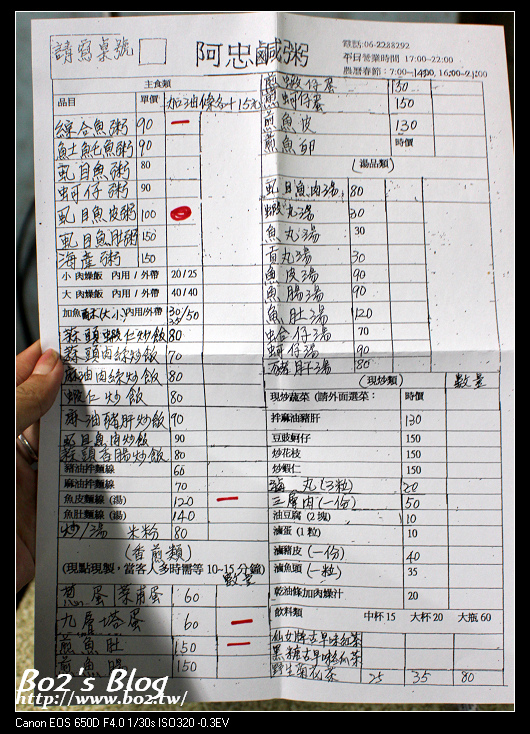 請寫桌號
阿忠鹹粥
電話:06-2288292
平日營業時間 17:00~22:00
農曆春節:7:00~14:00, 16:00~21:00
主食類
品目 單價 加油條多+15元
綜合魚粥 90
魠魚粥 90
虱目魚粥 80
蚵仔粥 90
虱目魚皮粥 100
虱目魚肚粥 150
海產粥 150
小肉燥飯 內用/外帶 20/25
大肉燥飯 內用/外帶 40/40
加魚酥(大小)內用/外帶 30/50
蒜頭蝦仁炒飯 80
蒜頭肉絲炒飯 70
麻油肉絲炒飯 80
蝦仁炒飯 80
麻油豬肝炒飯 90
虱目魚肉炒飯 90
蒜頭香腸炒飯 80
豬油拌麵線 60
麻油拌麵線 70
魚皮麵線 (湯) 120
魚肚麵線 (湯) 140
炒/湯 米粉 80
(香煎類)
(現點現製，當客人多時需等 10~15 分鐘)
數量
蔥蛋 菜甫蛋 60
九層塔蛋 60
煎魚肚 150
煎魚腸 150
煎蝦仔蛋 150
煎蚵仔蛋 150
煎魚皮 130
煎魚卵 時價
(湯品類)
虱目魚肉湯 80
蝦丸湯 30
魚丸湯 30
貢丸湯 30
魚皮湯 90
魚腸湯 90
魚肚湯 120
蛤仔湯 70
蚵仔湯 90
豬肝湯 80
(現炒類) 數量
現炒蔬菜 (請外面選菜) 時價
拌麻油豬肝 130
豆豉蚵仔 150
炒花枝 150
炒蝦仁 150
滷丸(3粒) 20
三層肉(一份) 50
油豆腐 (2 塊) 10
滷蛋 (1 粒) 10
滷豬皮 (一份) 40
滷魚頭 (一粒) 35
乾油條加肉燥汁 20
飲料類 中杯 15 大杯 20 大瓶 60
仙女牌古早味紅茶
黑糖古早味冬瓜茶
野生菊花茶 25 35 80
Bo2's Blog
http://www.bo2.tw/
Canon EOS 650D F4.0 1/30s ISO320 -0.3EV